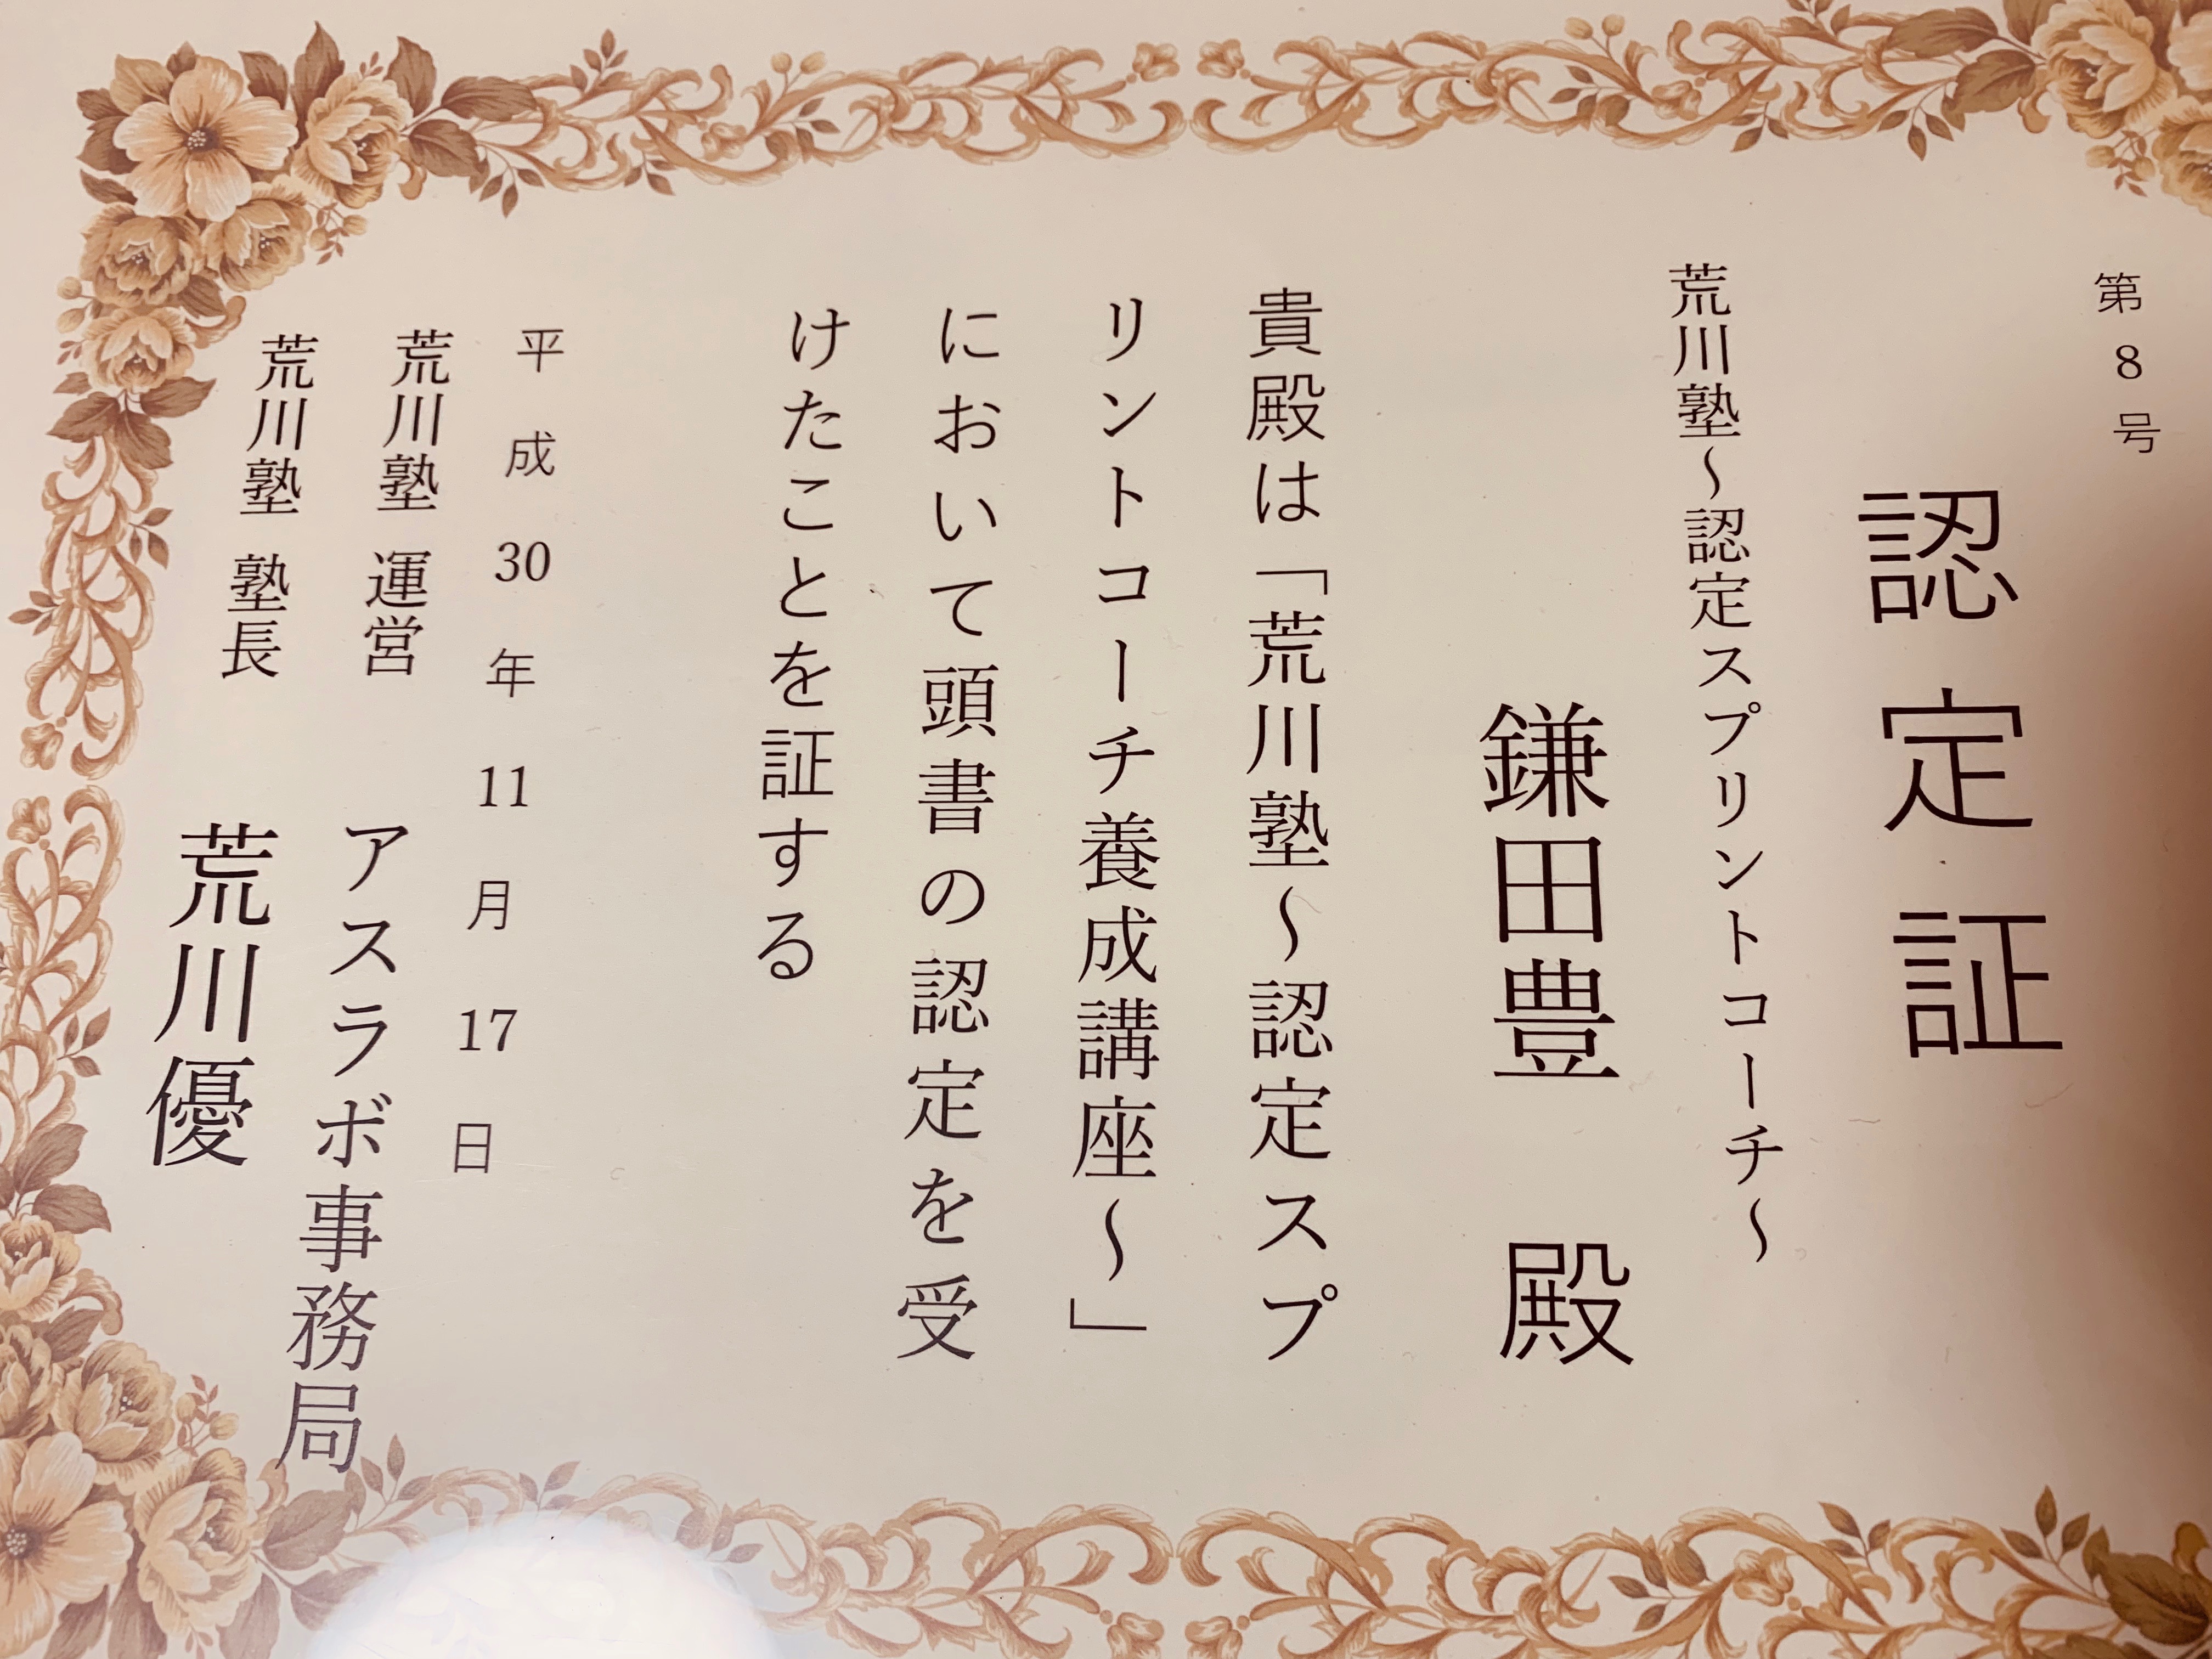 第8号
認定証
荒川塾～認定スプリントコーチ～
鎌田豊 殿
貴殿は「荒川塾～認定スプ
リントコーチ養成講座～」
において頭書の認定を受
けたことを証する
平成30年11月17日
荒川塾 運営 アスラボ事務局
荒川塾 塾長 荒川優